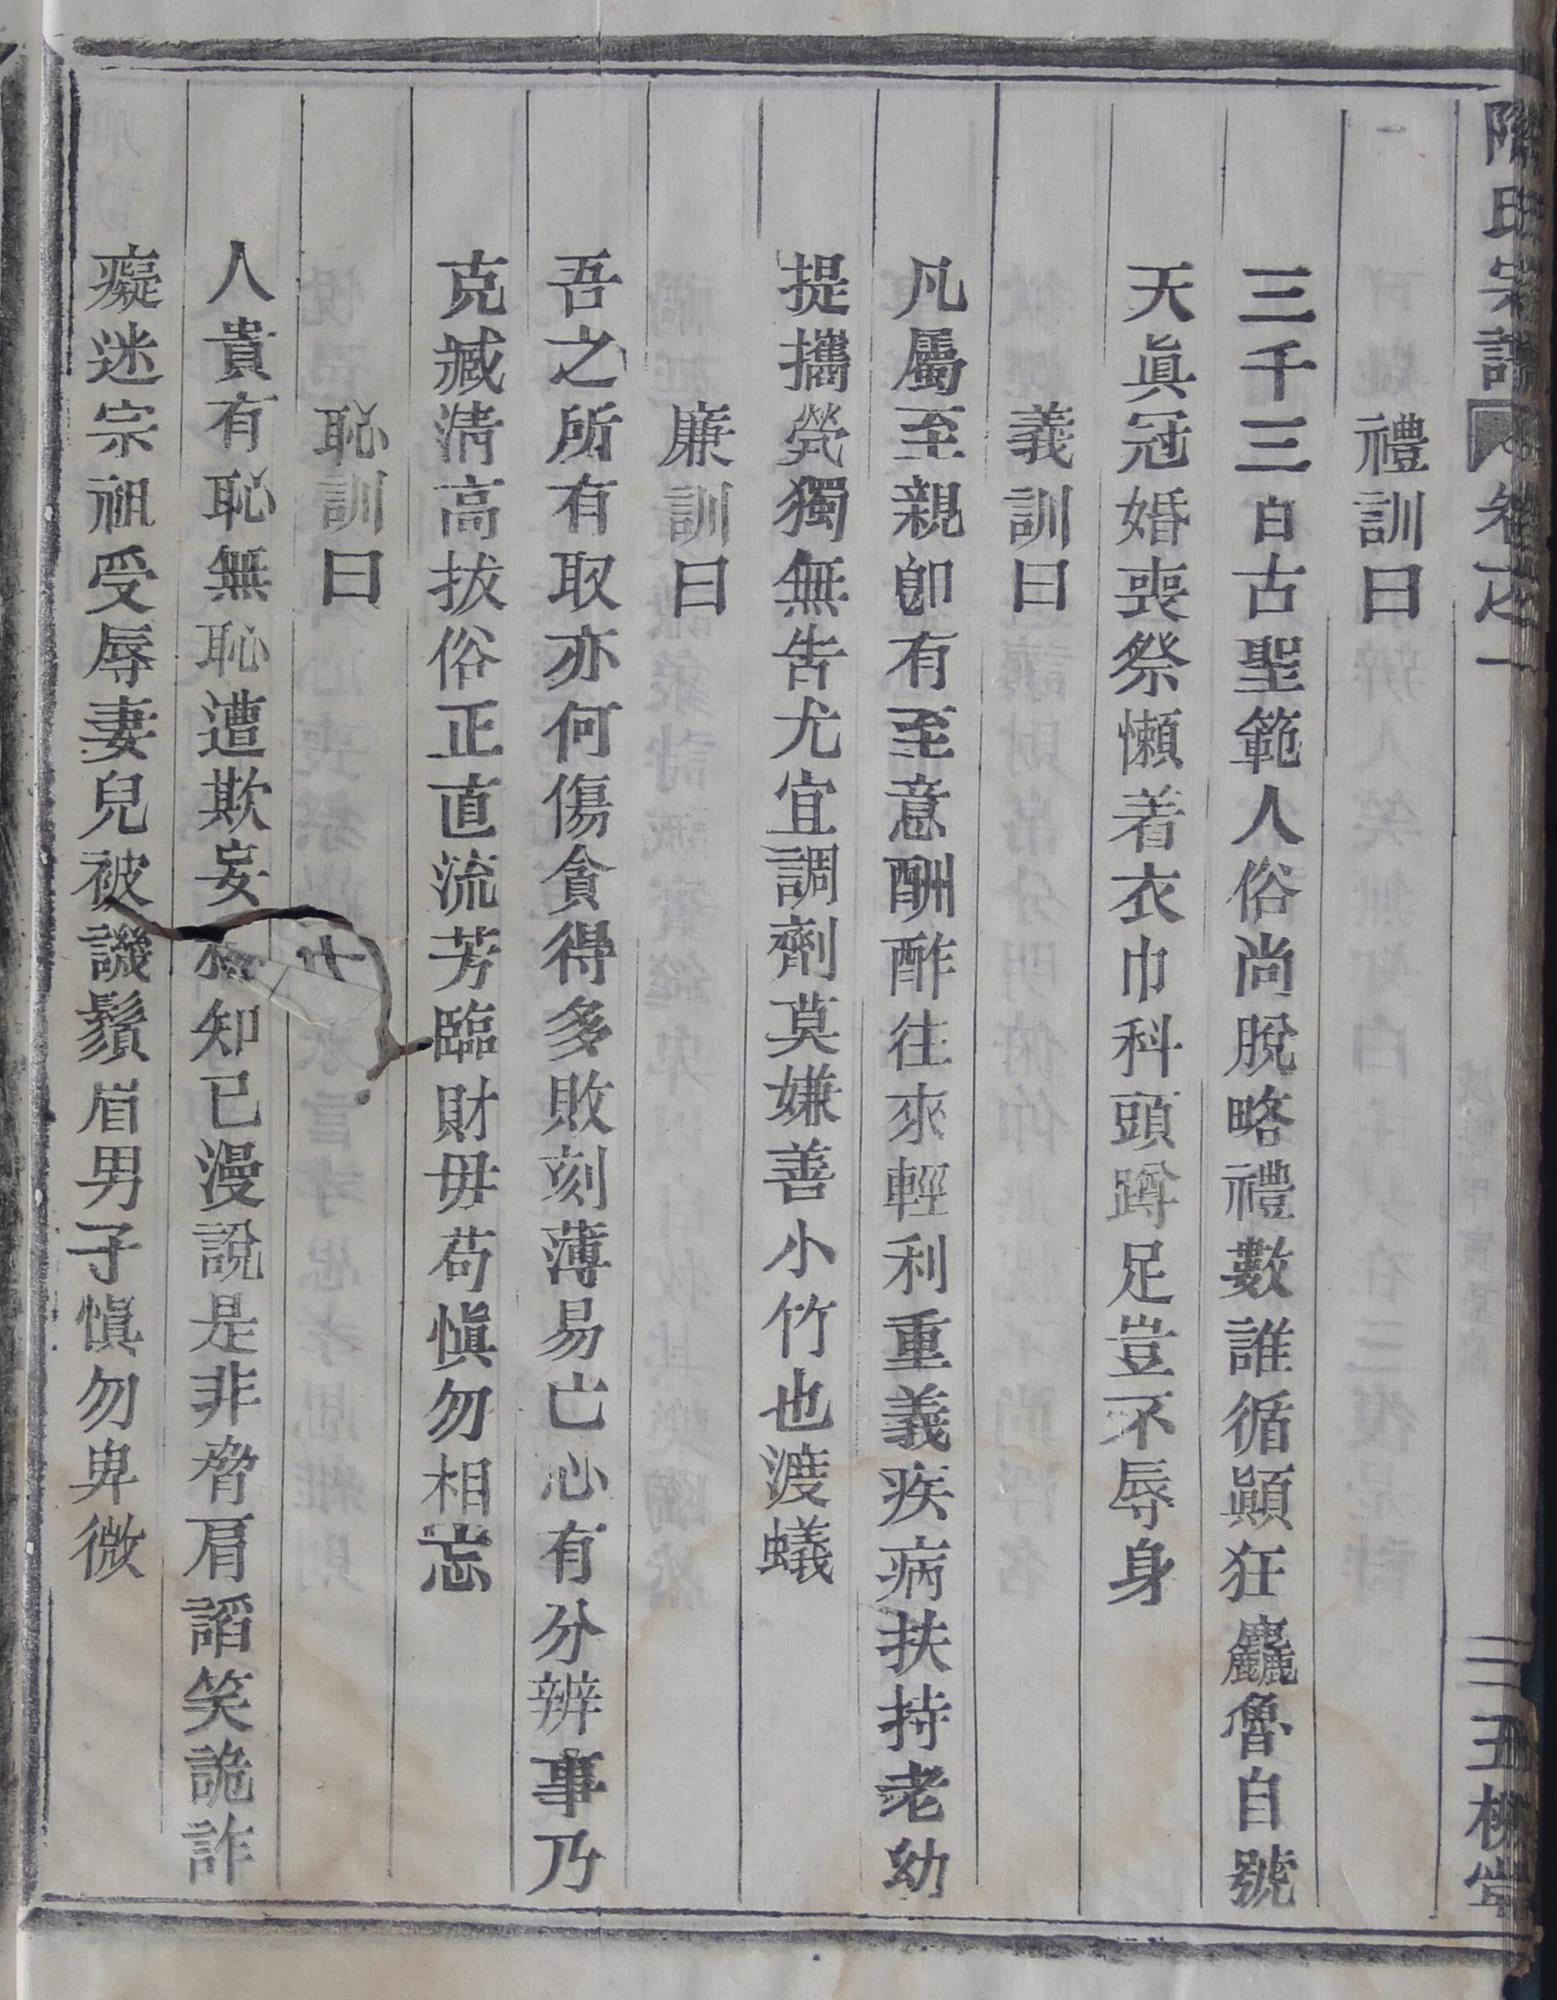 氏宗譜 卷之一 三 五柳堂
禮訓曰
三千三百古聖範人俗尚脫略禮數誰循顚狂麤魯自號
天眞冠婚喪祭懶着衣巾科頭蹲足豈不辱身
義訓曰
凡屬至親卽有至意酬酢往來輕利重義疾病扶持老幼
提攜煢獨無吿尤宜調劑莫嫌善小竹也渡蟻
廉訓曰
吾之所有取亦何傷貪得多敗刻薄易亡心有分辨事乃
克臧淸高拔俗正直流芳臨財毋苟愼勿相忘
恥訓曰
人貴有恥無恥遭欺妄知已漫說是非脅肩謟笑詭詐
癡迷宗祖受辱妻兒被譏鬚眉男子愼勿卑微